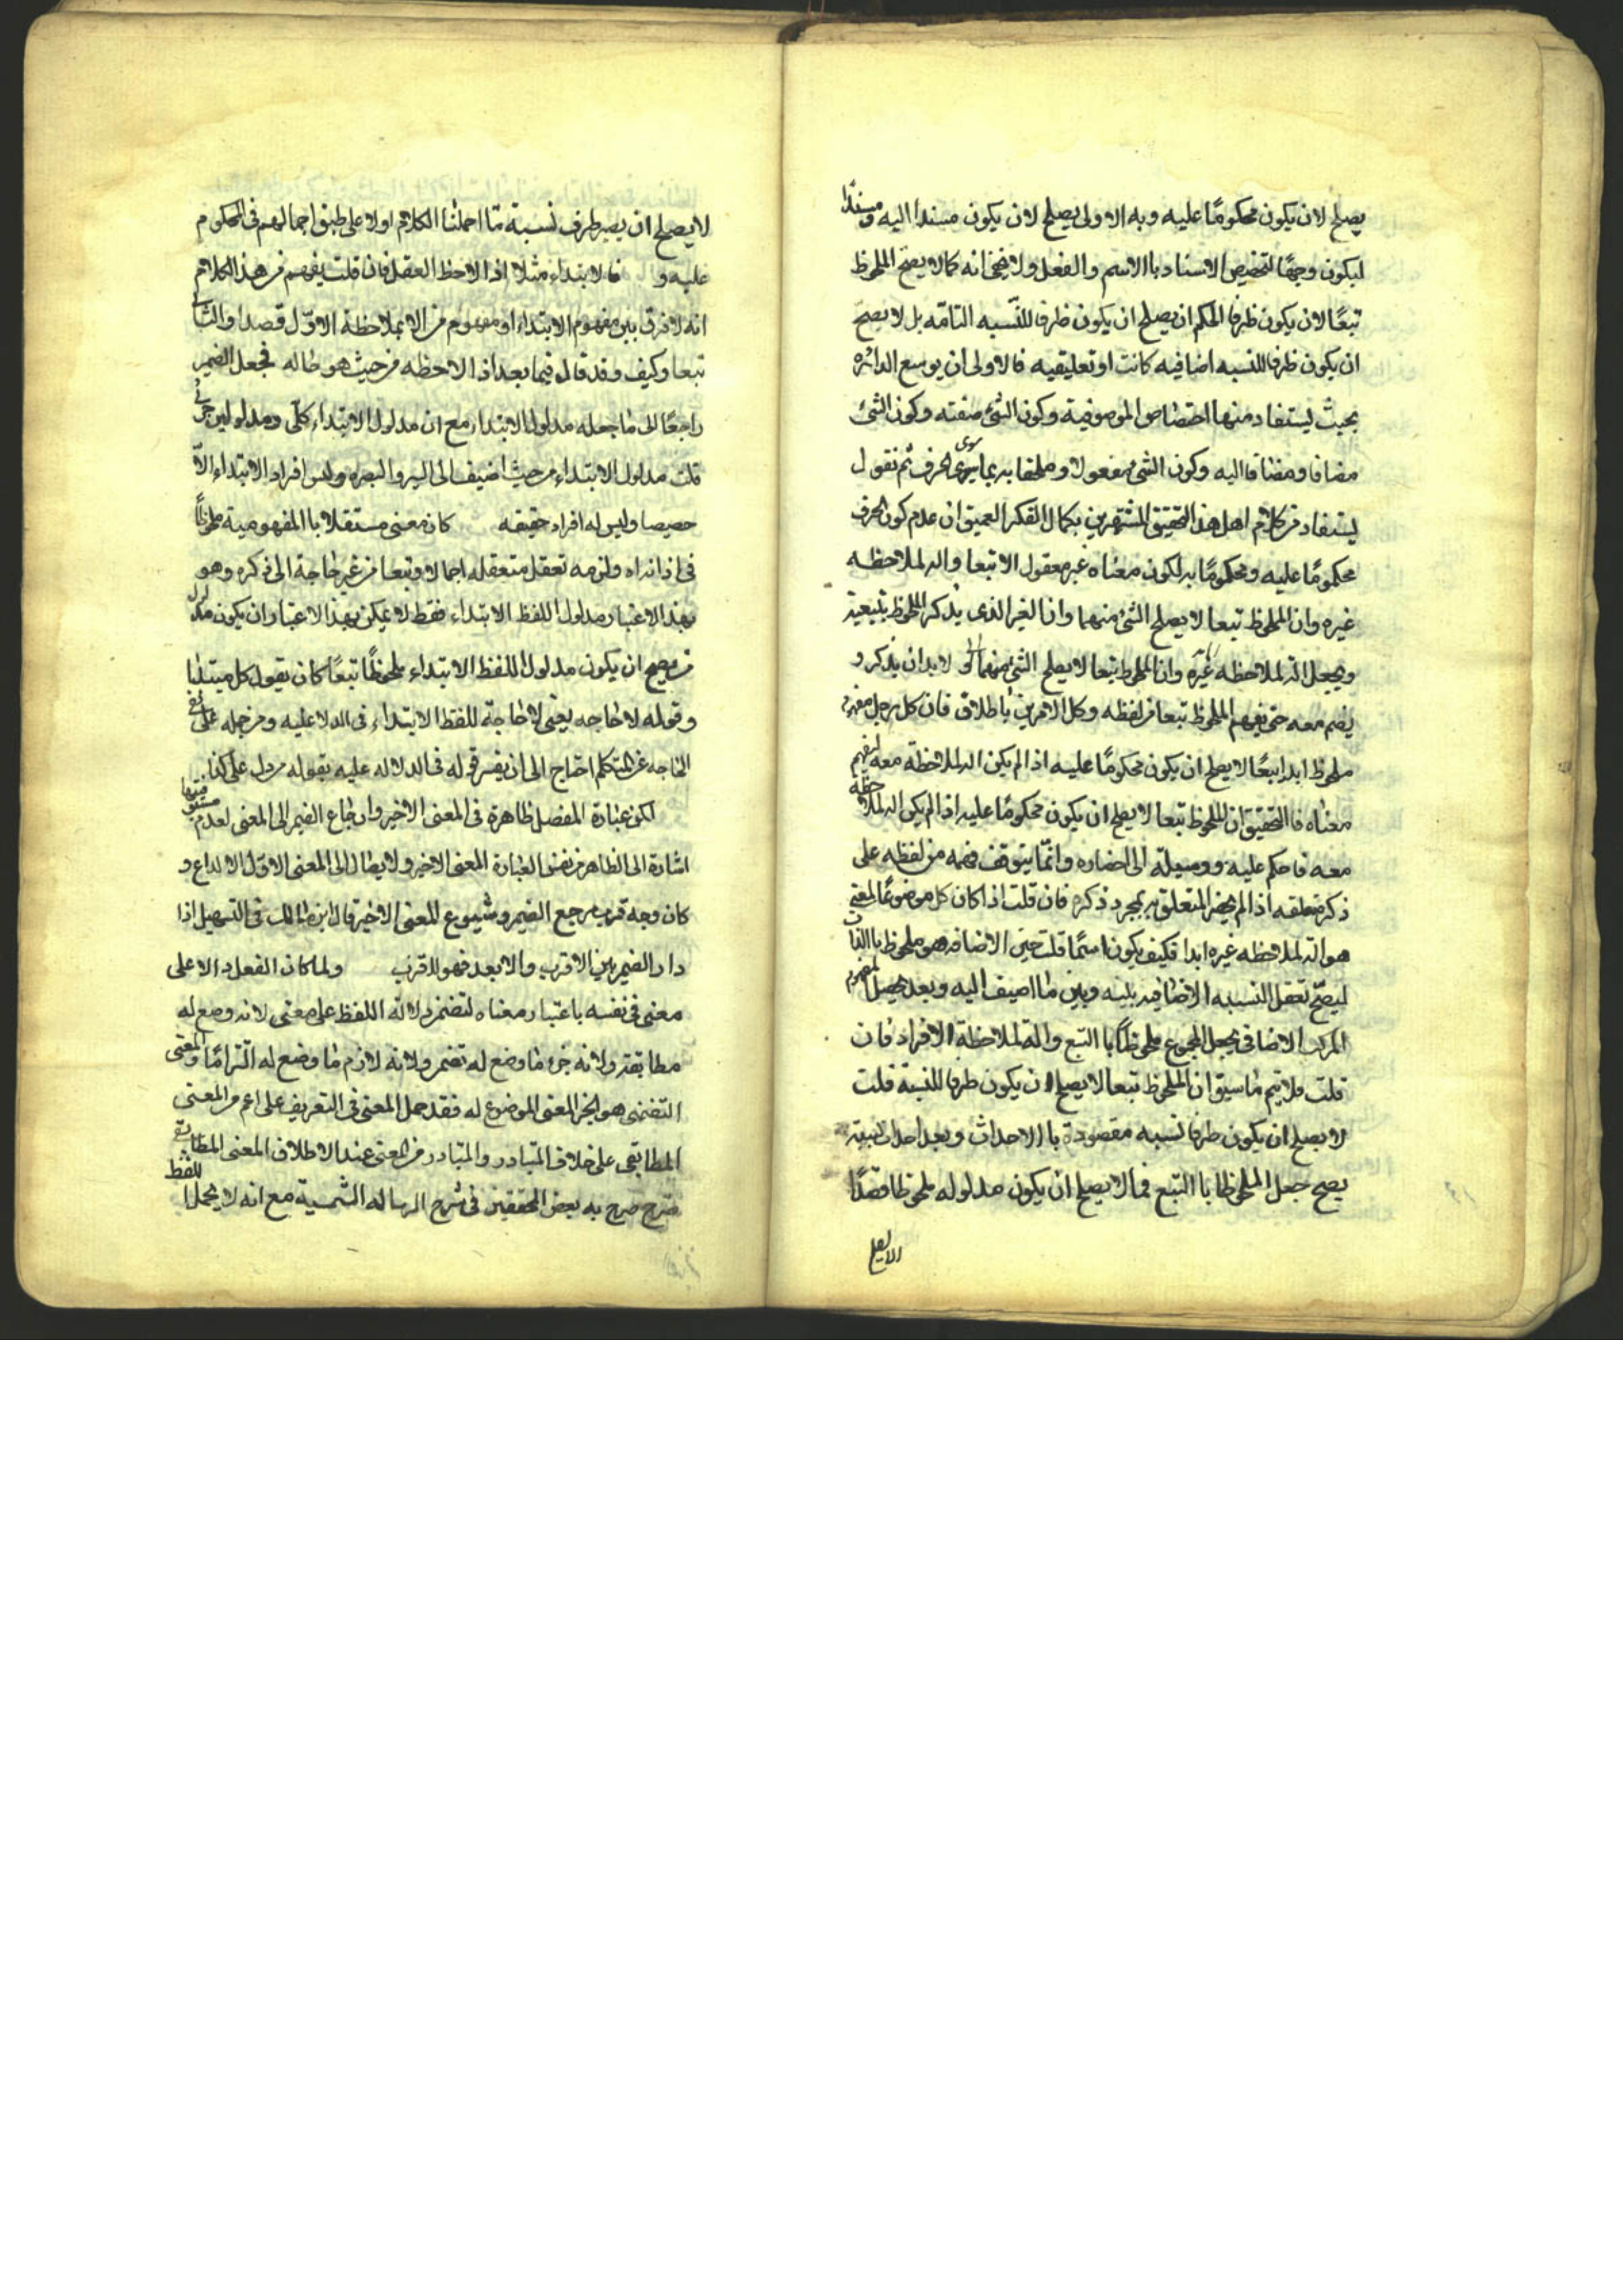 يصلح لان يكون محكومًا عليه وبه الاولى يصلح لان يكون مسندا اليه ومسندا
ليكون وجهًا لتخصيص الاسناد باالاسم والفعل ولا يخفى انه كما لا يصح الملحوظ
تبعًا لان يكون طرفا الحكم ان يصلح ان يكون طرفا للنسبه التامه بل لا يصح
ان يكون طرفا للنسبه اضافيه كانت او تعليقيه فالاولى ان يوسع الدائره
بحيث يستفاد منها اختصاص الموصوفية وكون الشئ صفته وكون الشئ
مضافا ومضافا اليه وكون الشئ مفعولا وملحقا به بما سوى الحرف ثم نقول
يستفاد من كلام اهل هذا التحقيق المشتهرين بكمال الفكر العميق ان عدم كون الحرف
محكومًا عليه ومحكومًا به لكون معناه غير معقول الا تبعا واله لملاحظه
غيره وان الملحوظ تبعا لا يصلح الشئ منهما وانا لغير الذى يذكر الملحوظ بتبعيته
ويجعل اله لملاحظه غيره وان الملحوظ تبعا لا يصلح الشئ منهما لابد ان يذكر و
يضم معه حتى يفهم الملحوظ تبعا من لفظه وكل الامرين باطلان فان كل رجل مفهوم
ملحوظ ابدا تبعًا لا يصلح ان يكون محكومًا عليه اذا لم يكن اله لملاحظة معه ليفهم
معناه فاالتحقيق ان الملحوظ تبعا لا يصلح ان يكون محكومًا عليه اذا لم يكن اله لملاحظه
معه فاحكم عليه ووسيلة الى احضاره وانما يتوقف فهمه من لفظه على
ذكر متعلقه اذا لم يحضر المتعلق به بمجرد ذكره فان قلت اذا كان كل موضوعًا لمعنى
هو اله لملاحظه غيره ابدا فكيف يكون اسمًا قلت حين الاضافه هو ملحوظ باالذات
ليصح تعقل النسبه الاضافيه بينه وبين ما اضيف اليه وبعد تحصيل مفهوم
المركب الاضافى يجعل المجموع ملحوظًا باالتبع والة لملاحظة الافراد فان
قلت فلا يتم ما سبق ان الملحوظ تبعا لا يصلح ان يكون طرفا للنسبة قلت
لا يصلح ان يكون طرفا نسبه مقصودة باالاحداث وبعد احداث النسبة
يصح جعل الملحوظا باالتبع فما لا يصلح ان يكون مدلوله ملحوظا قصدًا
لا يصلح
لا يصلح ان يصير طرف نسبة ما اجملنا الكلام اولا على طبق اجمالهم فى المحكوم
عليه و فالابتداء مثلا اذا لاحظ العقل فان قلت يفهم من هذا الكلام
انه لا فرق بين مفهوم الابتداء او مفهوم من الا بملاحظة الاول قصدا والثانى
تبعا وكيف وقد قال فيما بعد اذا لاحظه من حيث هو حاله فجعل الضمير
راجعًا الى ما جعله مدلول الابتداء مع ان مدلول الابتداء كلى ومدلول من جزئى
قلت مدلول الابتداء من حيث اضيف الى السير والبصره وليس افراد الابتداء الا
حصيصا وليس له افراد حقيقه كان معنى مستقلا باالمفهومية ملحوظًا
فى اذاته ولزمه تعقل متعقله اجمالا وتبعا من غير حاجة الى ذكره وهو
بهذا الاعتبار مدلول اللفظ الابتداء فقط لا يمكن بهذا الاعتبار ان يكون مدلول
من يصح ان يكون مدلولا للفظ الابتداء ملحوظًا تبعًا كان يقول كل مبتدا
وقوله لا حاجه يعنى لا حاجة للفظ الابتداء فى الدلا عليه ومن حمله على نفى
الحاجه عن المتكلم احتاج الى ان يفسر قوله فى الدلاله عليه بقوله من دل على كذا
لكن عبارة المفصل ظاهرة فى المعنى الاخير وارجاع الضمير الى المعنى لعدم
اشارة الى الظاهر من نفس العبارة المعنى الاخير ولا يضال الى المعنى الاول الا لداع و
كان وجه قريب مرجع الضمير وشيوع للمعنى الاخير قال ابن مالك فى التسهيل اذا
دار الضمير بين الاقرب والابعد فهو للاقرب ولما كان الفعل دالا على
معنى فى نفسه باعتبار معناه لتضمن دلالة اللفظ على معنى لانه وضع له
مطابقة ولانه جزء ما وضع له تضمن ولانه لازم ما وضع له التزامًا والمعنى
التضمنى هو الجزء المعنى الموضوع له فقد حمل المعنى فى التعريف على اعم من المعنى
المطابقى على خلاف المتبادر والمتبادر من المعنى عند الاطلاق المعنى المطابقى
صرح صرح به بعض المحققين فى شرح الرساله الشمسية مع انه لا يحمل اللفظ